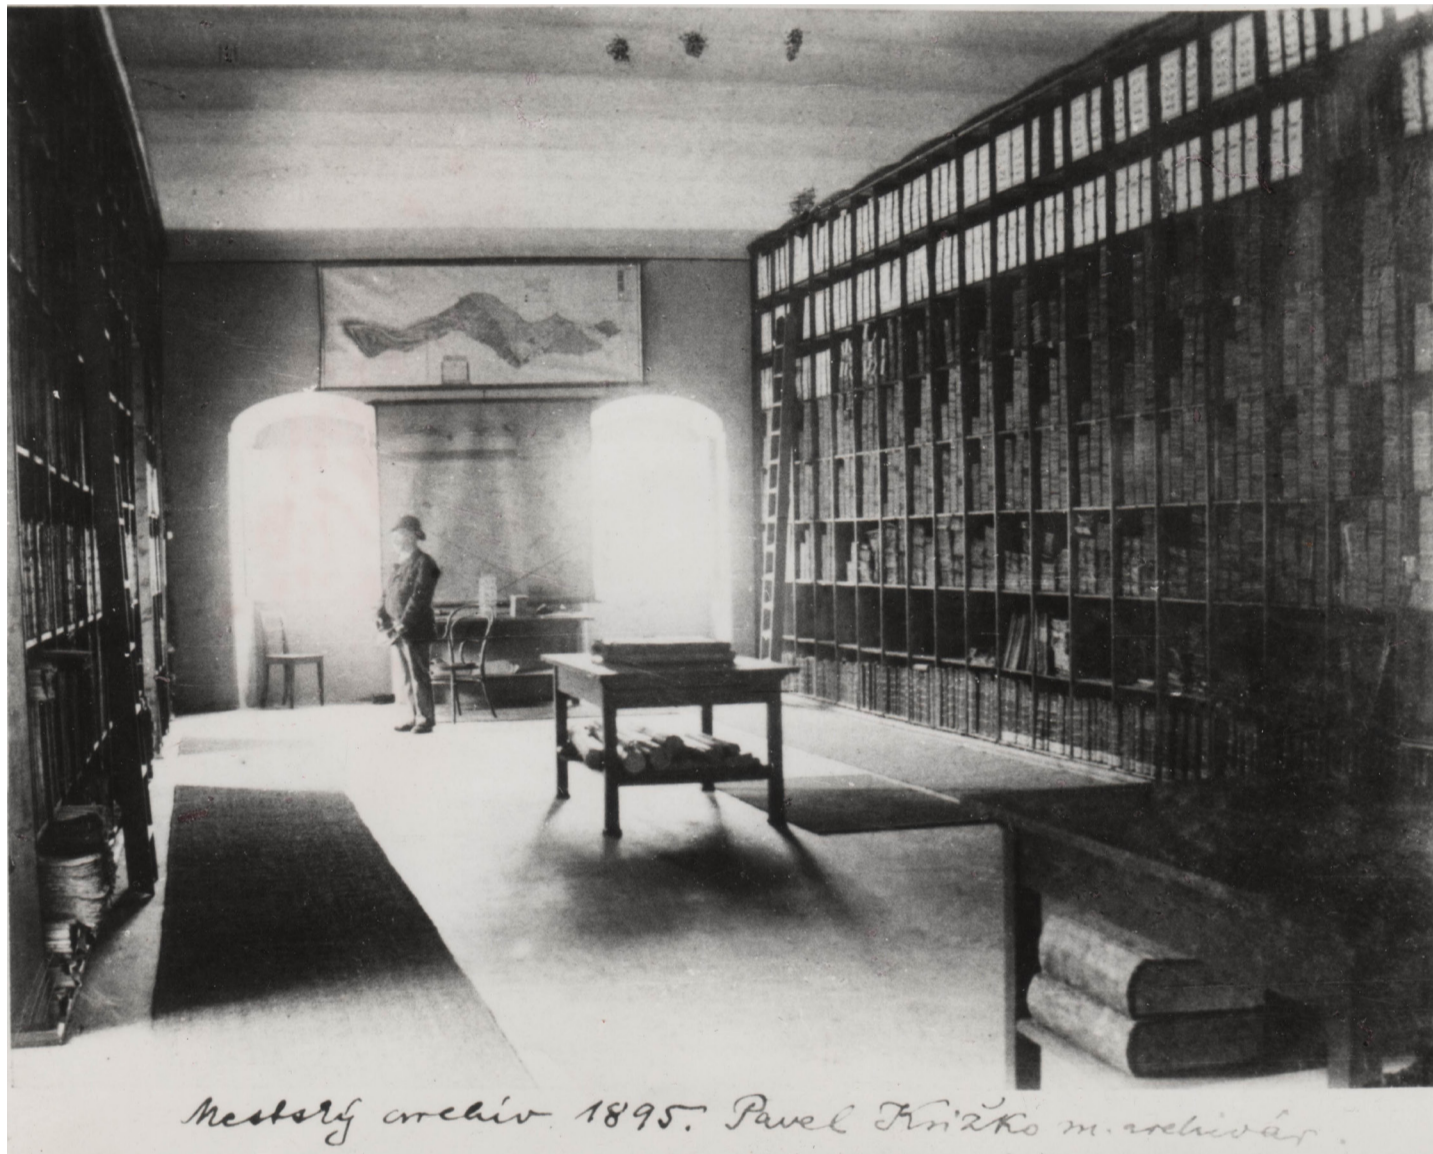 Mestský archív 1895. Pavel Križko m. archivár.